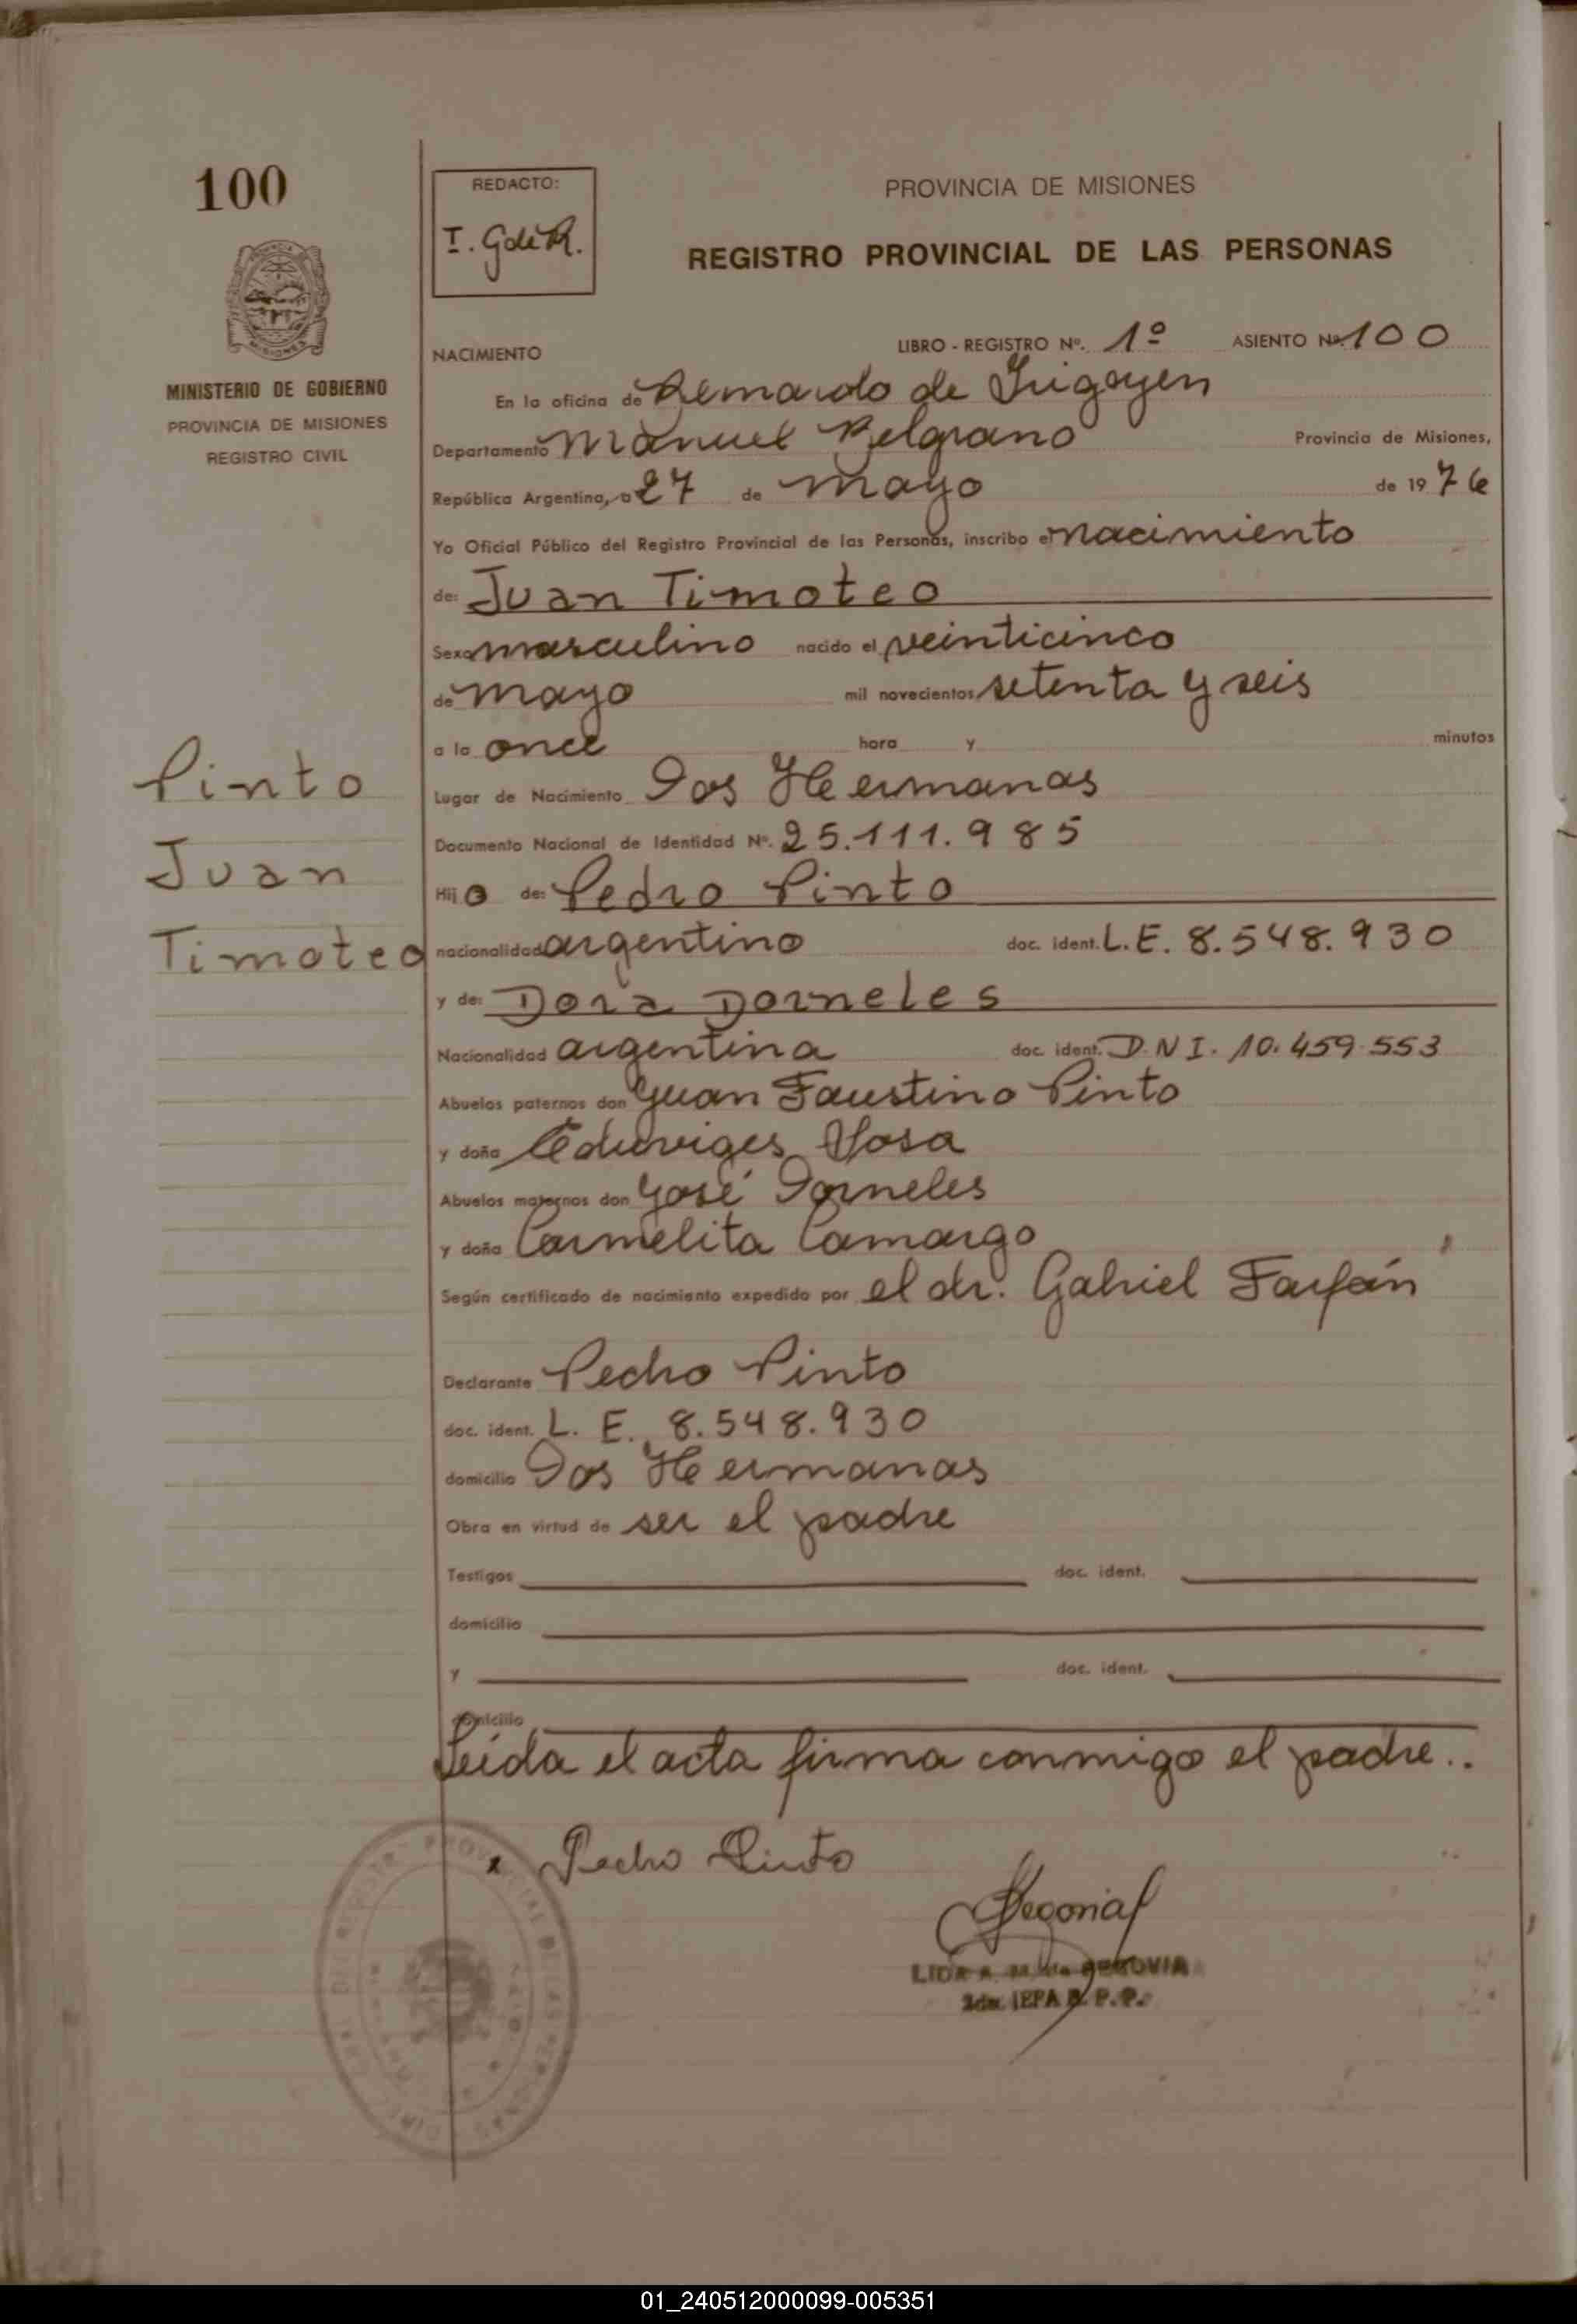 100
REDACTO:
I. G de R.
PROVINCIA DE MISIONES
REGISTRO PROVINCIAL DE LAS PERSONAS
MISIONES
MINISTERIO DE GOBIERNO
PROVINCIA DE MISIONES
REGISTRO CIVIL
NACIMIENTO
LIBRO - REGISTRO Nº. 1º ASIENTO Nº. 100
En la oficina de Bernardo de Irigoyen
Departamento Manuel Belgrano Provincia de Misiones,
República Argentina, a 27 de mayo de 1976
Yo Oficial Público del Registro Provincial de las Personas, inscribo el nacimiento
de: Juan Timoteo
Sexo masculino nacido el veinticinco
de mayo mil novecientos setenta y seis
a la once hora y minutos
Lugar de Nacimiento Dos Hermanas
Documento Nacional de Identidad Nº. 25.111.985
Hijo de: Pedro Pinto
nacionalidad argentino doc. ident. L.E. 8.548.930
y de: Dora Dorneles
Nacionalidad argentina doc. ident. D.N.I. 10.459.553
Abuelos paternos don Juan Faustino Pinto
y doña Eduviges Sosa
Abuelos maternos don José Dorneles
y doña Carmelita Camargo
Según certificado de nacimiento expedido por el dr. Gabriel Farfán
Declarante Pedro Pinto
doc. ident. L. E. 8.548.930
domicilio Dos Hermanas
Obra en virtud de ser el padre
Testigos doc. ident.
domicilio
y doc. ident.
domicilio
Leída el acta firma conmigo el padre..
Pinto
Juan
Timoteo
x Pedro Pinto
LIDA A. M. de SEGOVIA
R. P. P.
01_240512000099-005351